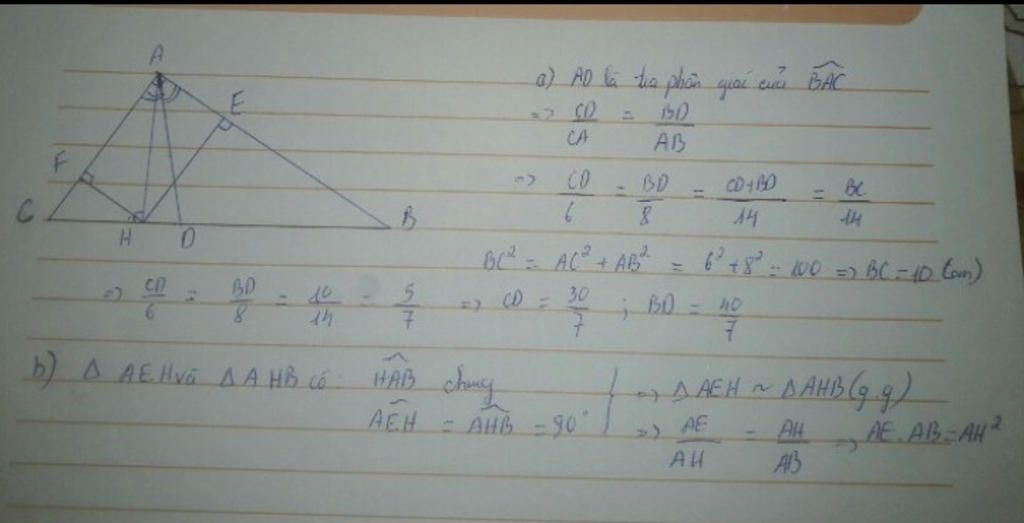 A
E
F
C
H
D
B
a) AD là tia phân giác của \widehat{BAC}
=> CD/CA = BD/AB
=> CD/6 = BD/8 = CD+BD/14 = BC/14
BC² = AC² + AB² = 6² + 8² = 100 => BC = 10 (cm)
=> CD/6 = BD/8 = 10/14 = 5/7 => CD = 30/7 ; BD = 40/7
b) Δ AEH và Δ AHB có: \widehat{HAB} chung
\widehat{AEH} = \widehat{AHB} = 90° } => Δ AEH ~ Δ AHB (g.g)
=> AE/AH = AH/AB => AE . AB = AH²